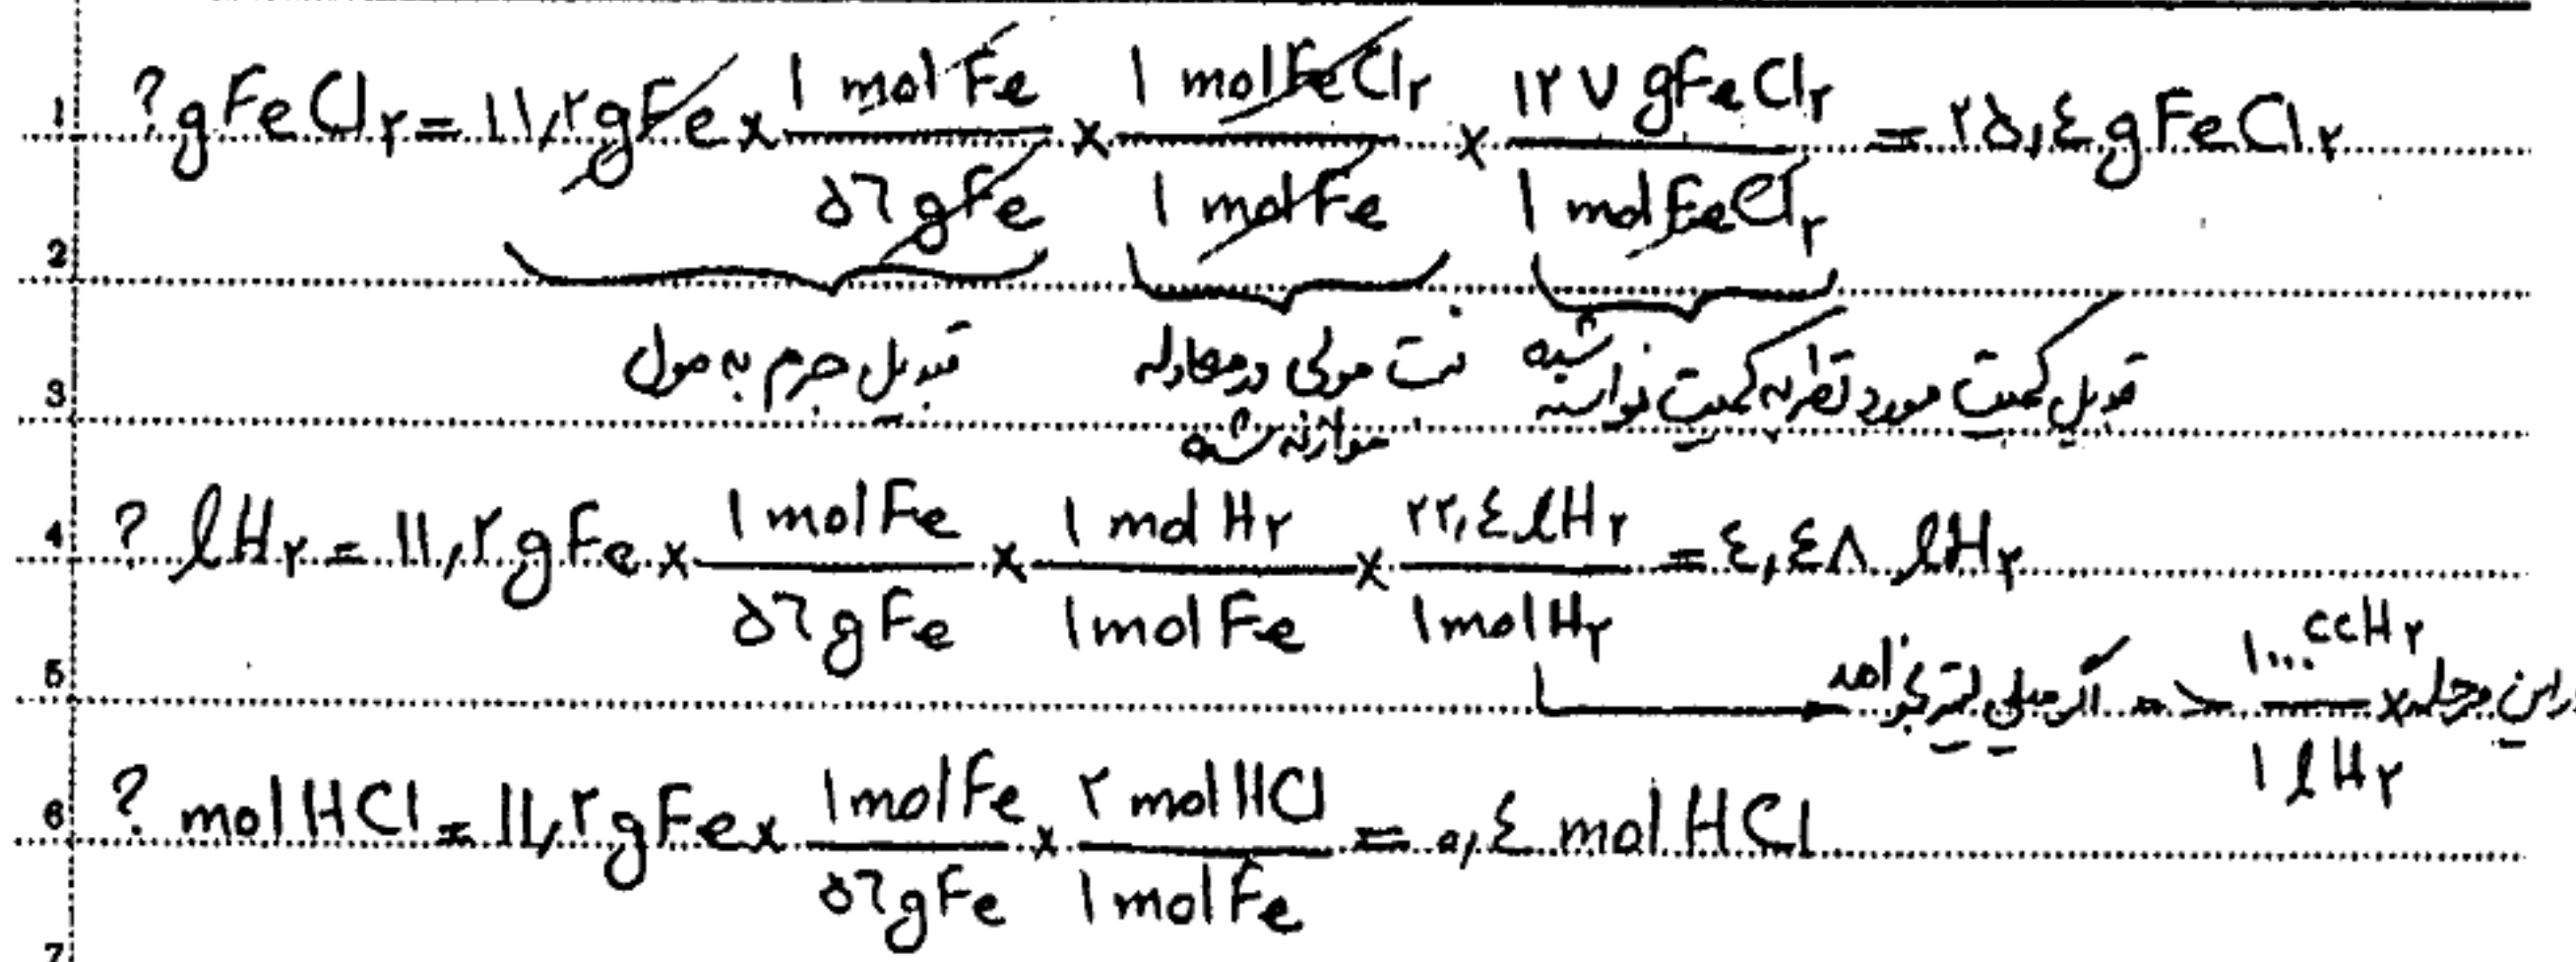 1 ? g FeCl۲ = ۱۱,۲ g Fe × ۱ mol Fe / ۵۶ g Fe × ۱ mol FeCl۲ / ۱ mol Fe × ۱۲۷ g FeCl۲ / ۱ mol FeCl۲ = ۲۵,۴ g FeCl۲
2
تبدیل جرم به مول
نسبت مولی در معادله
موازنه شده
تبدیل کمیت مورد نظر به کمیت خواسته شده
3
4 ? l H۲ = ۱۱,۲ g Fe × ۱ mol Fe / ۵۶ g Fe × ۱ mol H۲ / ۱ mol Fe × ۲۲,۴ l H۲ / ۱ mol H۲ = ۴,۴۸ l H۲
5 اگر میلی لیتر بخواهد => ۱۰۰۰ cc H۲ / ۱ l H۲ × این مرحله
6 ? mol HCl = ۱۱,۲ g Fe × ۱ mol Fe / ۵۶ g Fe × ۲ mol HCl / ۱ mol Fe = ۰,۴ mol HCl
7